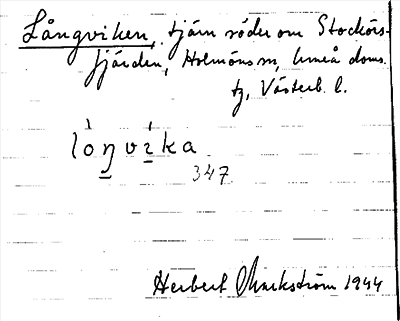 Långviken, tjärn söder om Stockörs-
fjärden, Holmöns sn, Umeå doms.
tg, Västerb. l.
lòŋvíka
347
Herbert Markström 1944